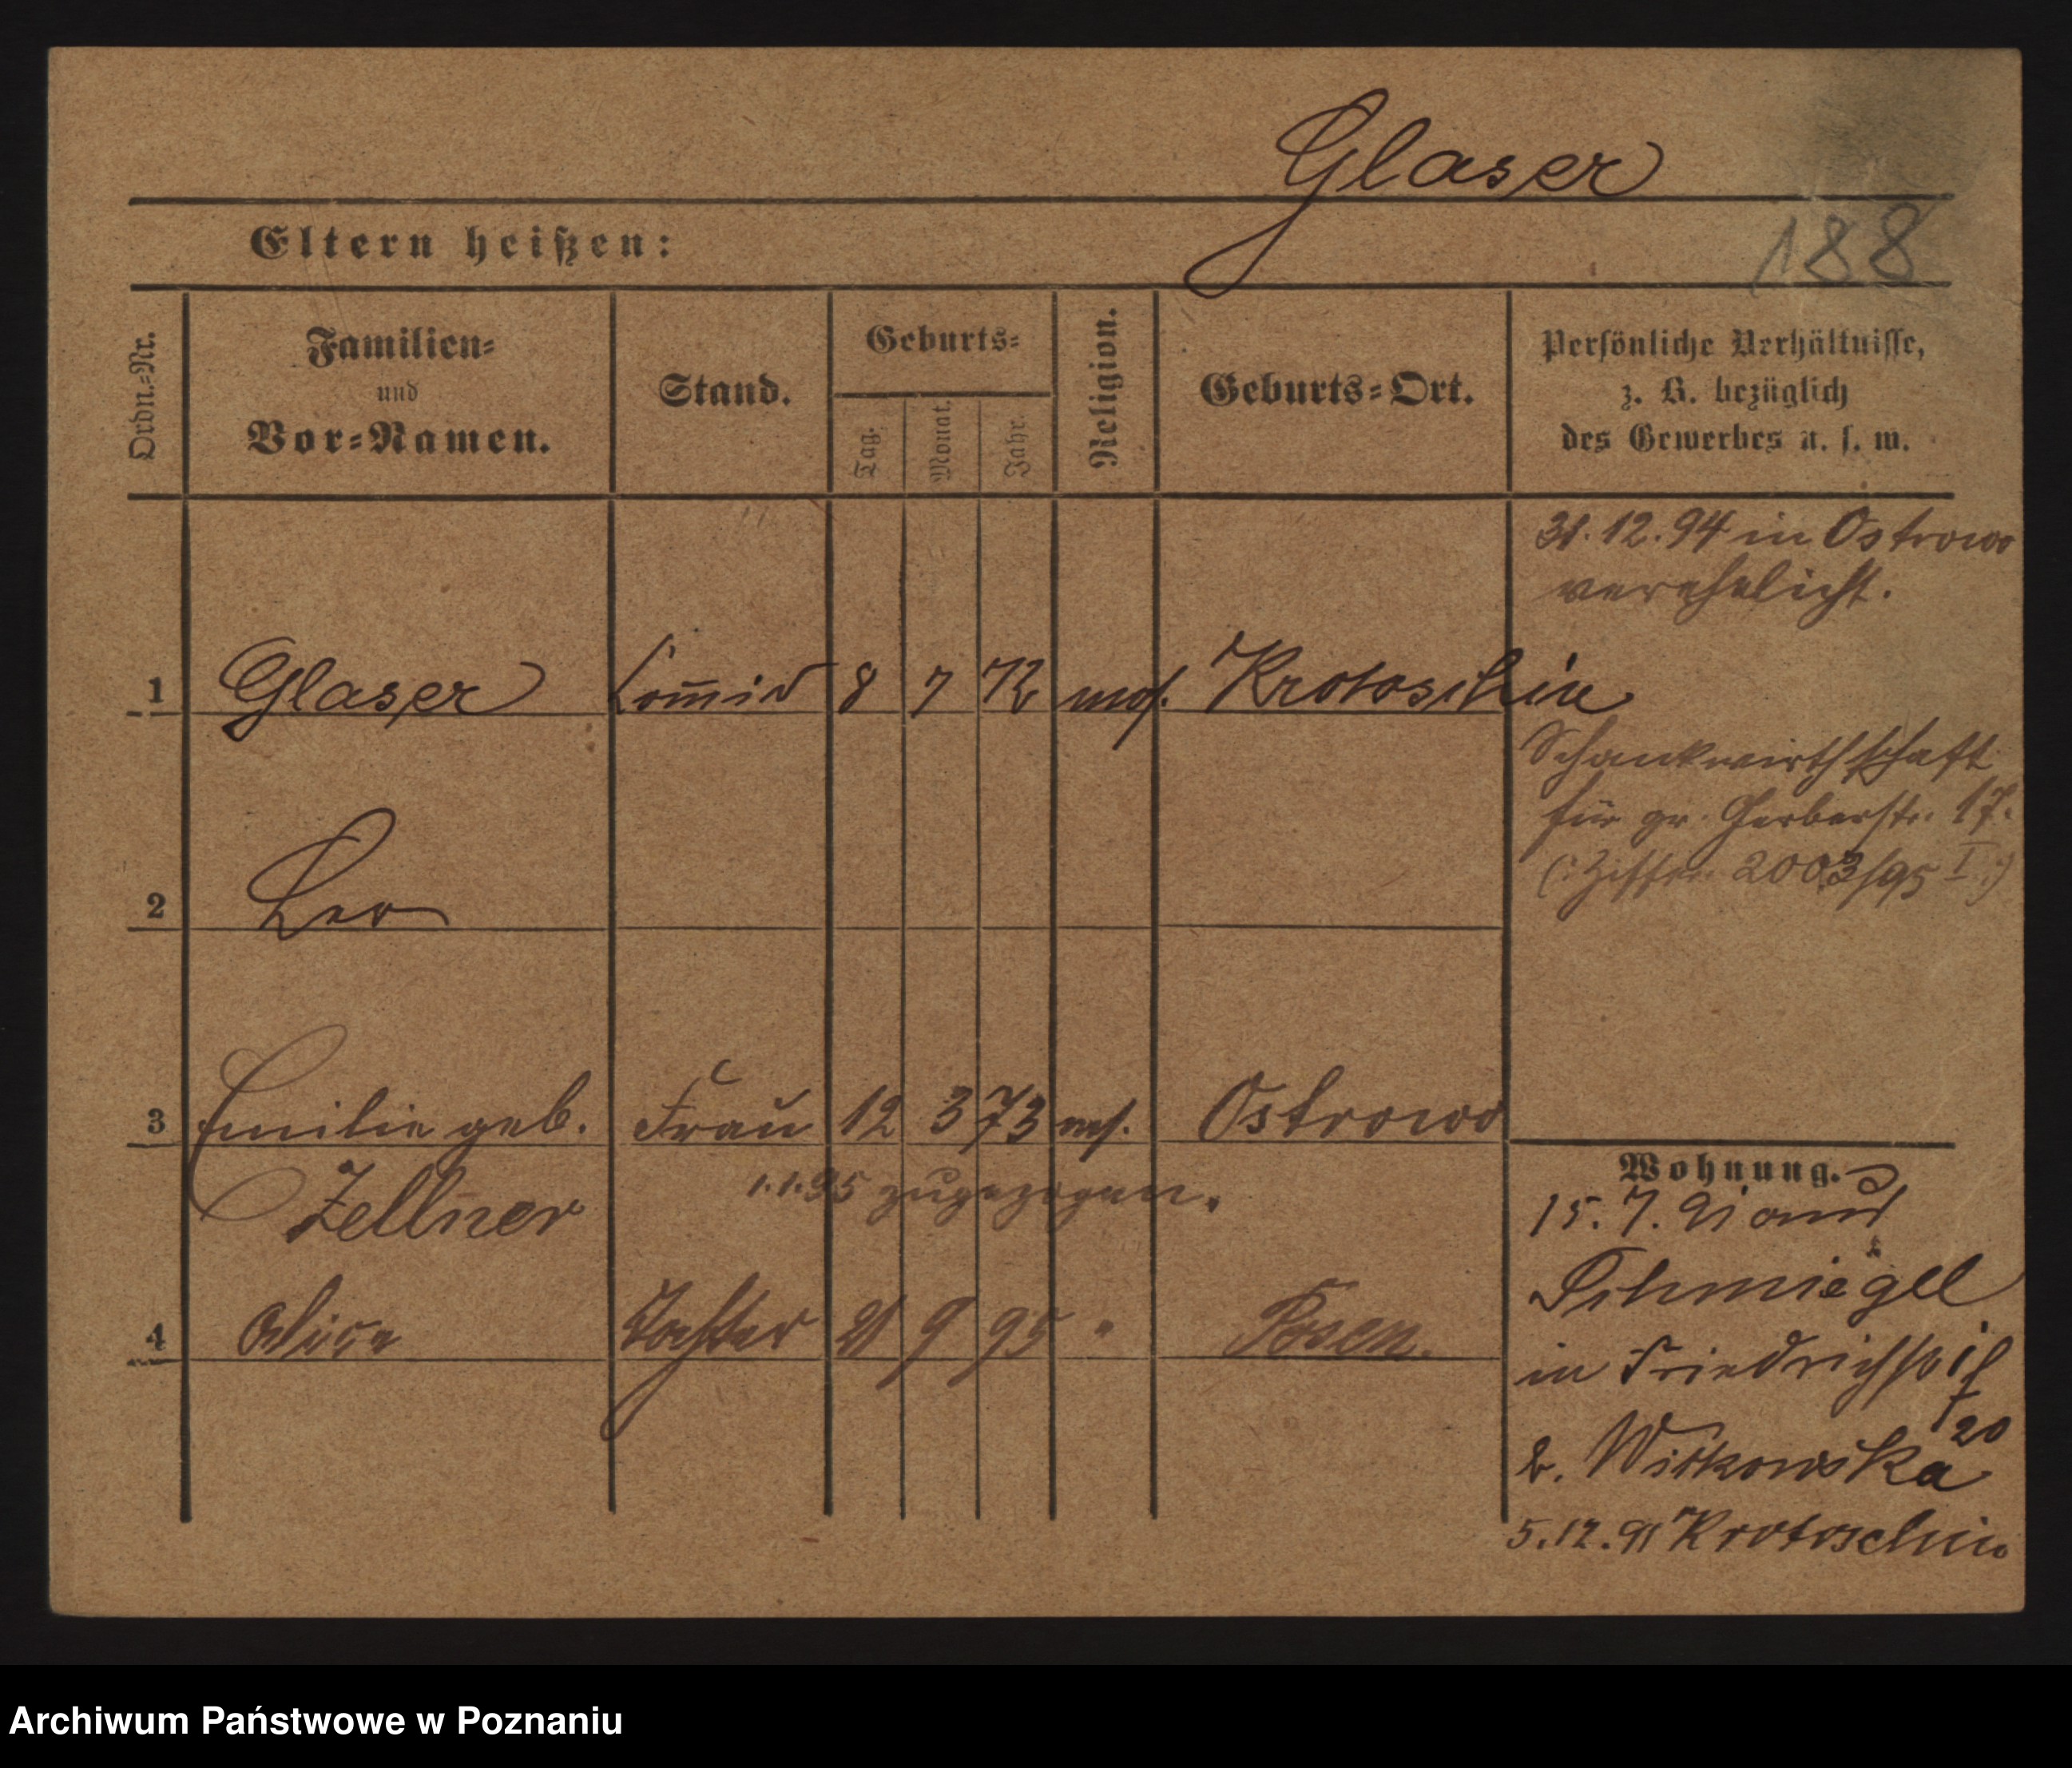 Glaser
Eltern heißen:
188
Ordn.-Nr.
Familien-
und
Vor-Namen.
Stand.
Geburts-
Tag.
Monat.
Jahr.
Religion.
Geburts-Ort.
Persönliche Verhältnisse,
z. B. bezüglich
des Gewerbes u. s. w.
31.12.94 in Ostrowo
verehelicht.
1 Glaser Com̅is 8 7 72 mos. Krotoschin
Schankwirthschaft
für gr. Gerberstr. 17.
(: Ziffer 2003/95 I :)
2 Leo
3 Emilie geb. Frau 12 3 73 mos. Ostrowo
Zellner
1.1.95 zugezogen.
Wohnung.
15. 7. 91 aus
Schmiegel
4 Alice Tochter 21 9 95 " Posen.
in Friedrichstr
20
b. Witkowska
5.12.91 Krotoschin
Archiwum Państwowe w Poznaniu